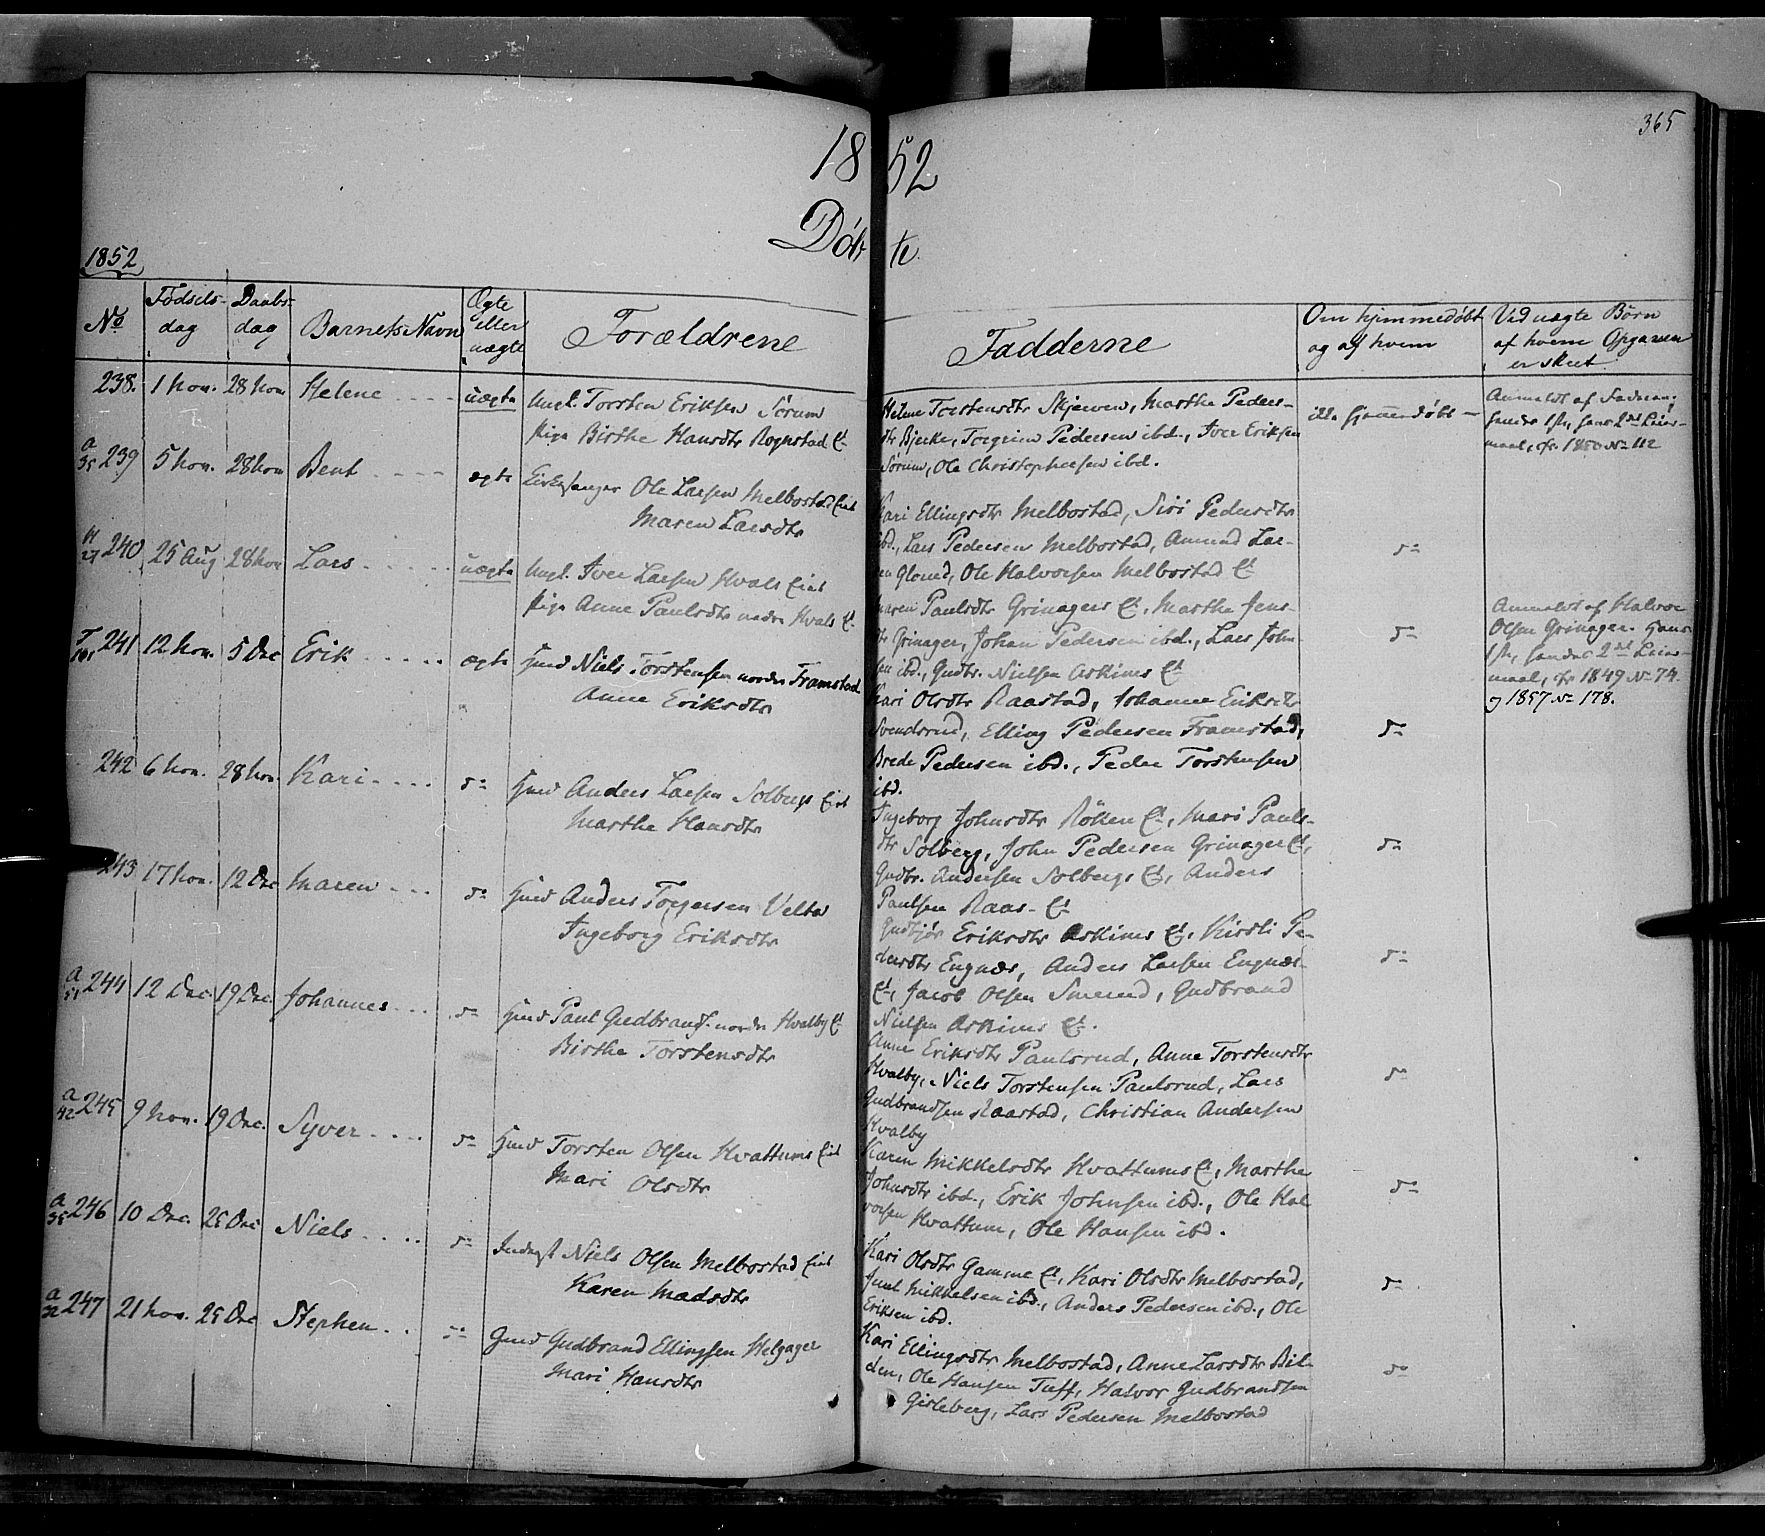 18 52
365
Døbte.
1852
No
Fødsels-
dag
Daabs-
dag
Barnets Navn
Ægte
eller
uægte
Forældrene
Fadderne
Om hjemmedøbt
og af hvem
Ved uægte Børn
af hvem Opgaven
er skeet
238. 1 Nov. 28 Nov Helene - - - - uægte Ungk. Torsten Eriksen Sørum
Pige Birthe Hansdtr Rognstad E.
Helene Torstensdtr Skjerven, Marthe Peders-
dtr Bjerke, Torgrim Pedersen ibd., Iver Eriksen
Sørum, Ole Christophersen ibd.
ikke hjemmedøbt -
Anmeldt af Faderen.
hendes 1ste, hans 2det Leier-
maal, cfr. 1850 No 112
a
35 239 5 Nov. 28 Nov Bent - - - - ægte Kirkesanger Ole Larsen Melbostad Eiet
Maren Larsdtr
Kari Ellingsdtr Melbostad, Siri Pedersdtr
ibd., Lars Pedersen Melbostad, Amund Lar-
sen Glorud, Ole Halvorsen Melbostad E.
do
27 240 25 Aug 28 Nov Lars - - - - - uægte Ungk. Iver Larsen Hvals Eiet
Pige Anne Paulsdtr nedre Hvals E.
Maren Paulsdtr Grinagers E., Marthe Jens-
dtr Grinager, Johan Pedersen ibd., Lars John-
sen ibd., Gudbr. Nielsen Askims E.
do
Anmeldt af Halvor
Olsen Grinager. Hans
1ste, hendes 2det Leier-
maal, cfr 1849 No 74.
og 1857 No 178.
241 12 Nov. 5 Dec Erik - - - - - ægte Gmd Niels Torstensen nordre Framstad
Anne Eriksdtr
Kari Olsdtr Raastad, Johanne Eriksdtr
Svendsrud, Elling Pedersen Framstad,
Brede Pedersen ibd., Peder Torstensen
ibd.
do
242 6 Nov. 28 Nov. Kari - - - - do Hmd Anders Larsen Solbergs Eiet
Marthe Hansdtr
Ingeborg Johnsdtr Röken E., Mari Pauls-
dtr Solberg, John Pedersen Grinager E.,
Gudbr. Andersen Solbergs E., Anders
Paulsen Raas- E.
do
243 17 Nov. 12 Dec Maren - - - do Hmd Anders Torgersen Velta
Ingeborg Eriksdtr
Gudbjør Eriksdtr Askims E., Kirsti Pe-
dersdtr Engnæs, Anders Larsen Engnæs-
E., Jacob Olsen Smerud, Gudbrand
Nielsen Askims E.
do
a
51 244 12 Dec. 19 Dec. Johannes - - - do Hmd Paul Gudbrands. nordre Hvalby E.
Birthe Torstensdtr
Anne Eriksdtr Paulsrud, Anne Torstensdtr
Hvalby, Niels Torstensen Paulsrud, Lars
Gudbrandsen Raastad, Christian Andersen
Hvalby
do
a
42 245 9 Nov. 19 Dec. Syver - - - - do Hmd Torsten Olsen Kvattums Eiet
Mari Olsdtr
Karen Mikkelsdtr Kvattums E., Marthe
Johnsdtr ibd., Erik Johnsen ibd., Ole Hal-
vorsen Kvattum, Ole Hansen ibd.
do
a
35 246 10 Dec. 25 Dec Niels - - - - do Inderst Niels Olsen Melbostad Eiet
Karen Madsdtr
Kari Olsdtr Gamme E., Kari Olsdtr Melbostad,
Juul Mikkelsen ibd., Anders Pedersen ibd., Ole
Eriksen ibd.
do
a
32 247 21 Nov. 25 Dec Stephen - - do Gmd Gudbrand Ellingsen Helgager
Mari Hansdtr
Kari Ellingsdtr Melbostad, Anne Larsdtr Bil-
den, Ole Hansen Tuff, Halvor Gudbrandsen
Gisleberg, Lars Pedersen Melbostad
do